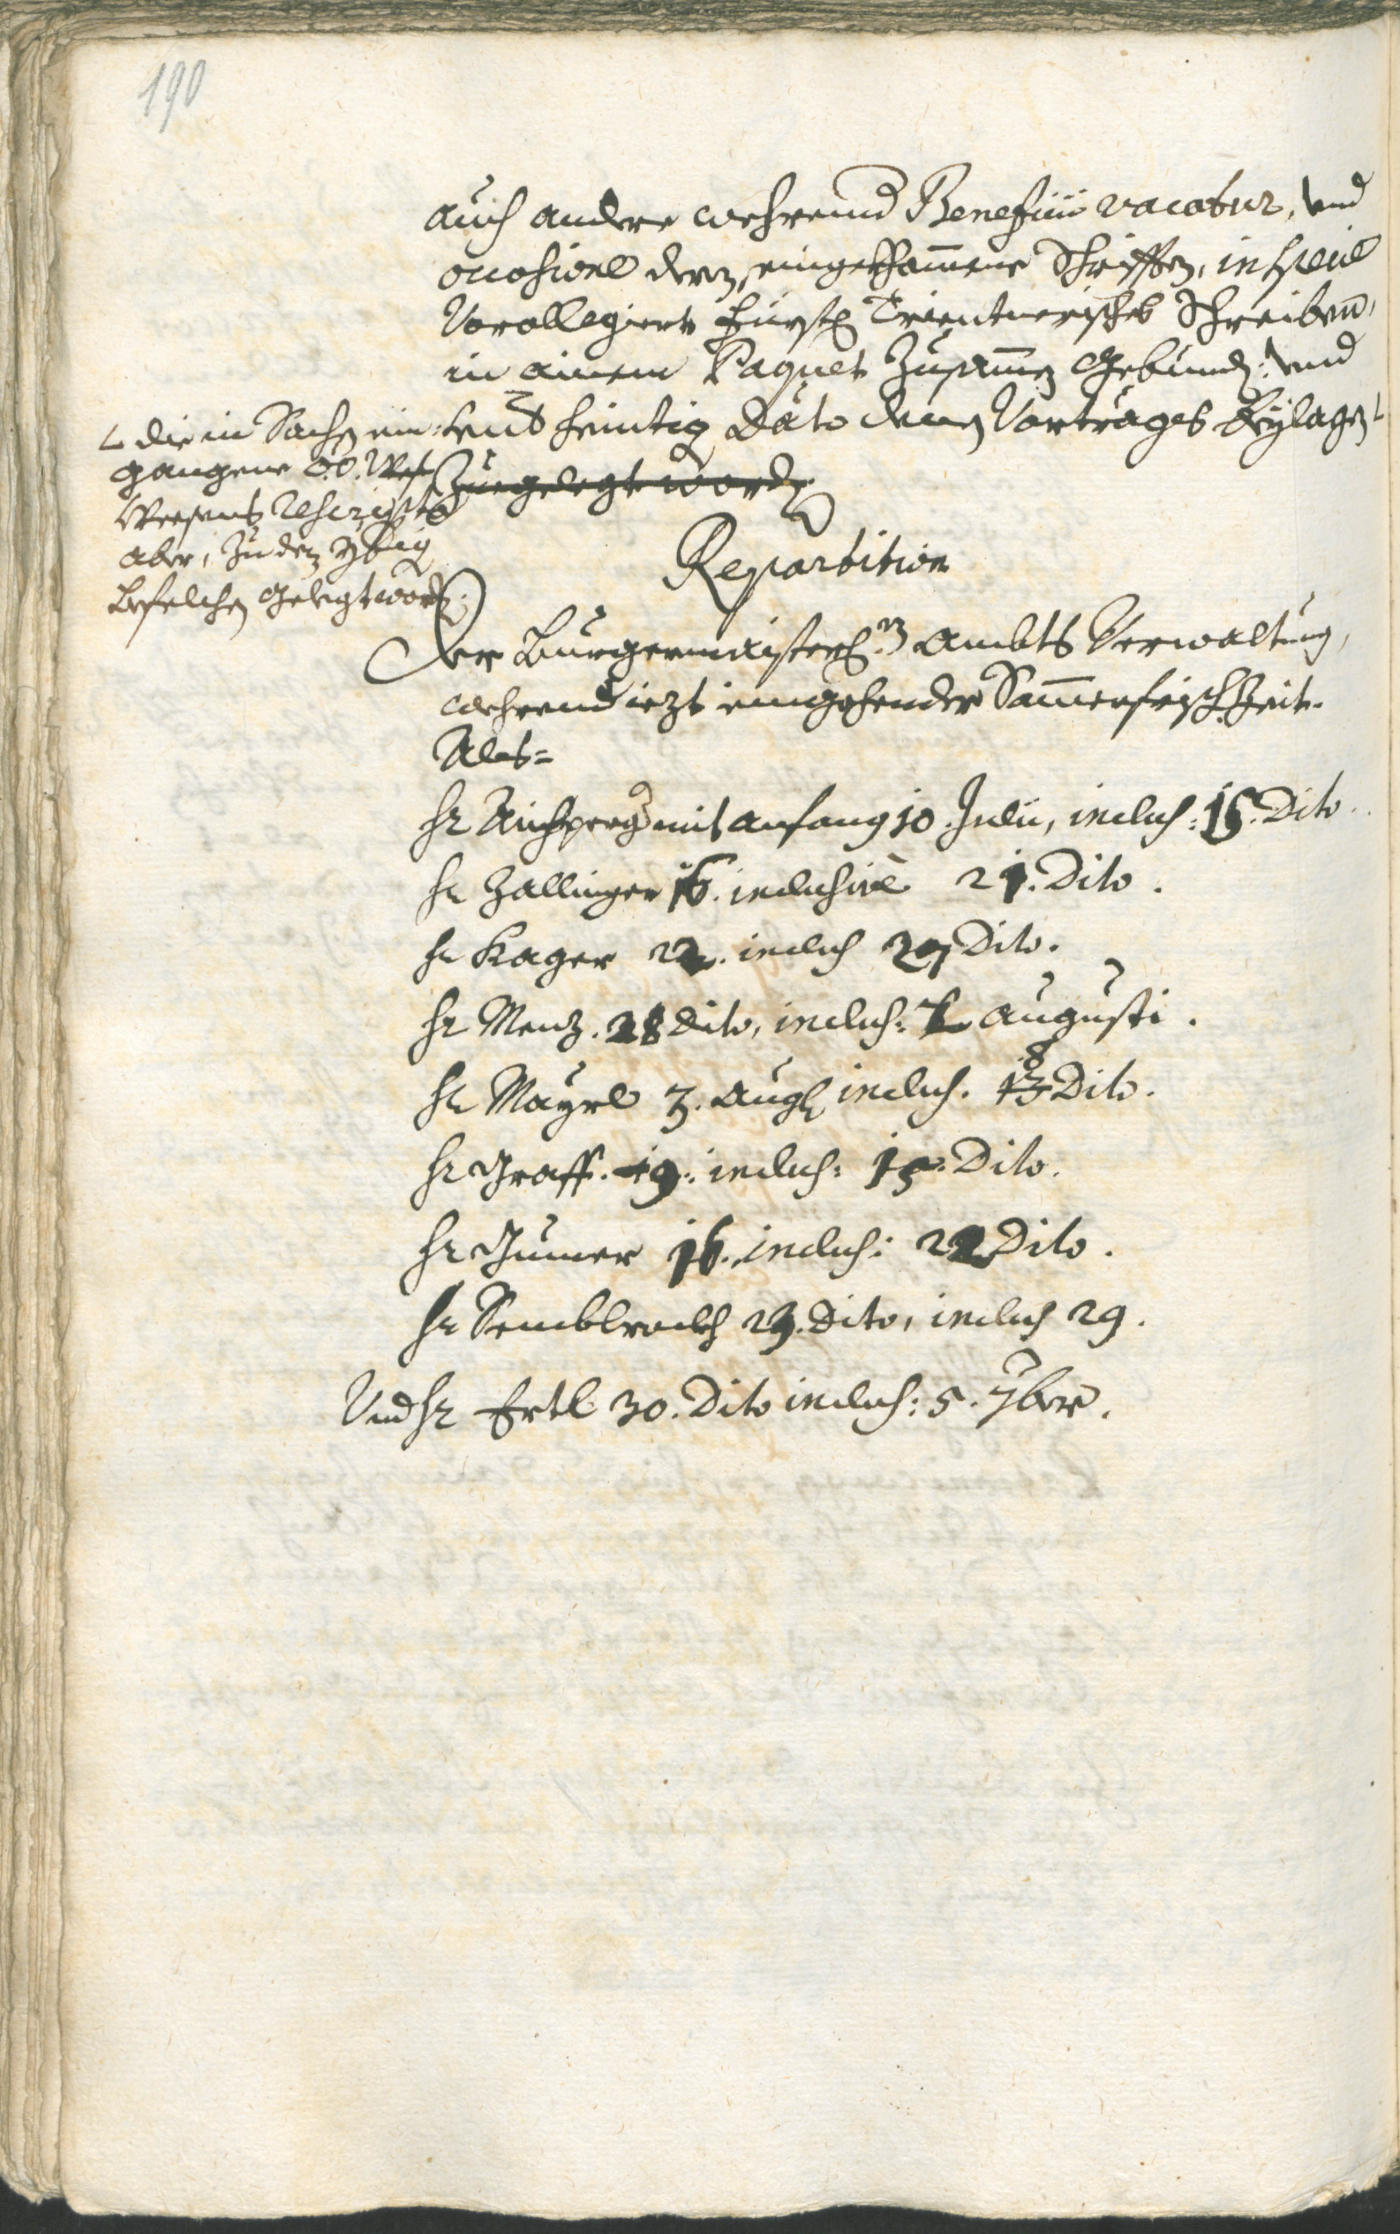 190
auch andere wehrend Beneficii vacatur, und
occasione deren, eingekhomene Schrifften, in specie
Vorallegierte Fürstl Trientnerisches Schreiben,
in ainem Paquet Zusamen Gebunden: und
sub heintig Dato denen Vortrages Beylagen
Zuegelegt worden.
die in Sachen ein:
gangene O:Ö. Wesens
Wesens Rescripta
aber, Zu den ybrig
befelchen gelegt word.
Repartition
Der Burgermaisterl:n Ambts Verwaltung,
wehrend iezt eingehender Sommerfrisch Zeit.
Als=
Hr Aichperg mit anfang 10 Julii, inclus: 15. Dito.
Hr Zallinger 16. inclusive 21. Dito.
Hr Kager 22. inclus 27 Dito.
Hr Menz. 28 Dito, inclus: 2 Augusti.
Hr Mayrl 3. Aug inclus. 8 Dito.
Hr Graff. 9. inclus: 15. Dito.
Hr Gumer 16. inclus: 22 Dito.
Hr Semblrockh 23. Dito, inclus 29.
Und Hr Ertl 30. Dito inclus: 5. 7ber.